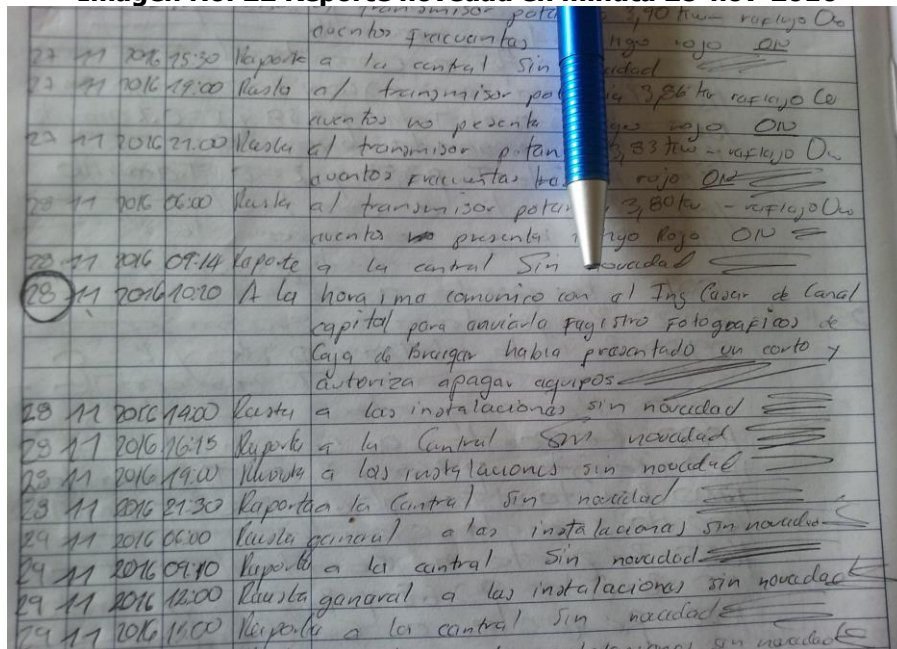 Imagen No. 22 Reporte novedad en minuta 28-nov-2016
transmisor pota 3,90 kw raflajo
cuentos fracuentas rojo ON
27 11 2016 15:30 Raporte a la central Sin
27 11 2016 19:00 Rasta al transmisor pot 3,86 kw raflajo
cuentos no pesenta rojo ON
27 11 2016 21:00 Rasta al transmisor potan 3,83 kw - raflajo
cuentos rojo ON
28 11 2016 06:00 Rasta al transmisor potan 3,80 kw - raflajo
cuentos no presenta Rojo ON
28 11 2016 09:14 Raporte a la central Sin novedad
28 11 2016 10:20 A la hora, me comunico con el Ing Casar de Canal
capital para anviarla ragistro Fotograficos de
Caja de Braigar habia prasentado un corto y
autoriza apagar aquipos
28 11 2016 14:00 Rausta a las instalaciones sin novedad
28 11 2016 16:15 Raporte a la Cantral Sin novedad
28 11 2016 19:00 a las instalaciones sin novedad
28 11 2016 21:30 Raporta a la Cantral sin novedad
29 11 2016 06:00 Rausta ganaral a las instalacionas sin novedad
29 11 2016 09:10 Raporte a la cantral Sin novedad
29 11 2016 12:00 Rausta ganaral a las instalaciones sin novedad
29 11 2016 15:00 Raporte a la cantral Sin novedad
sin novedad